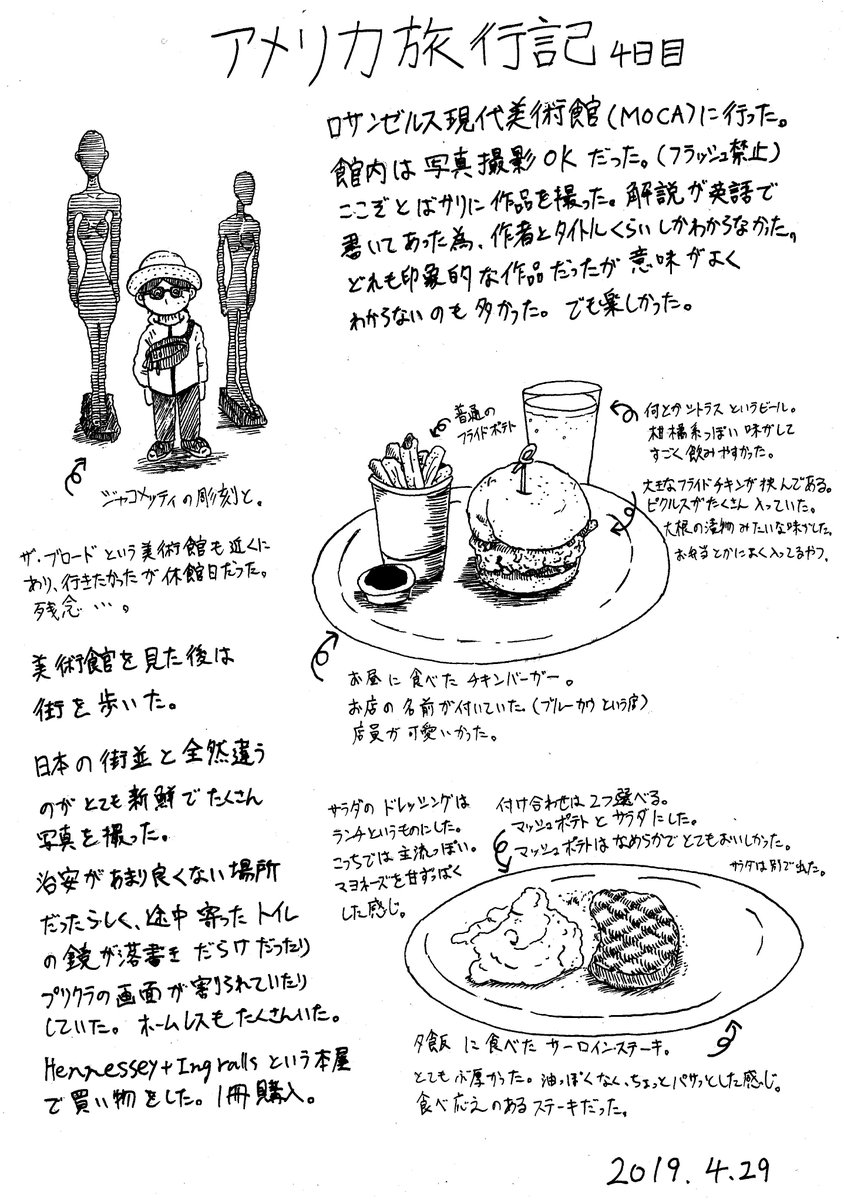 アメリカ旅行記 4日目
ロサンゼルス現代美術館(MOCA)に行った。
館内は写真撮影OKだった。(フラッシュ禁止)
ここぞとばかりに作品を撮った。解説が英語で
書いてあった為、作者とタイトルくらいしかわからなかった。
どれも印象的な作品だったが意味がよく
わからないのも多かった。でも楽しかった。
ジャコメッティの彫刻と。
ザ・ブロードという美術館も近くに
あり、行きたかったが休館日だった。
残念…。
普通の
フライドポテト
何とかシトラスというビール。
柑橘系っぽい味がして
すごく飲みやすかった。
大きなフライドチキンが挟んである。
ピクルスがたくさん入っていた。
大根の漬物みたいな味がした。
お弁当とかによく入ってるやつ。
お昼に食べたチキンバーガー。
お店の名前が付いていた。(ブルーカウという店)
店員が可愛いかった。
美術館を見た後は
街を歩いた。
日本の街並と全然違う
のがとても新鮮でたくさん
写真を撮った。
治安があまり良くない場所
だったらしく、途中寄ったトイレ
の鏡が落書きだらけだったり
プリクラの画面が割られていたり
していた。ホームレスもたくさんいた。
Hennessey+Ingrallsという本屋
で買い物をした。1冊購入。
サラダのドレッシングは
ランチというものにした。
こっちでは主流っぽい。
マヨネーズを甘ずっぱく
した感じ。
付け合わせは2つ選べる。
マッシュポテトとサラダにした。
マッシュポテトはなめらかでとてもおいしかった。
サラダは別で出た。
夕飯に食べたサーロインステーキ。
とてもぶ厚かった。油っぽくなく、ちょっとパサッとした感じ。
食べ応えのあるステーキだった。
2019.4.29